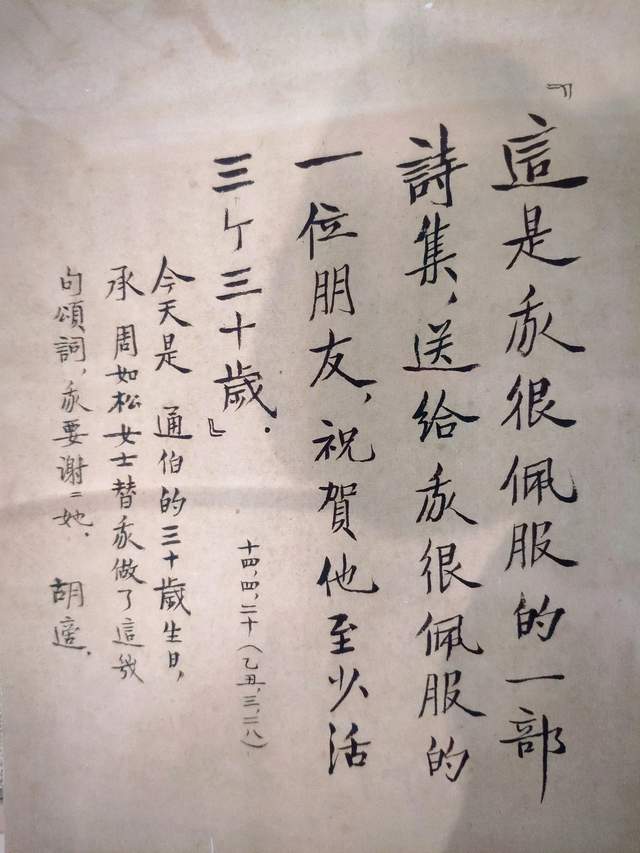 『這是我很佩服的一部
詩集，送給我很佩服的
一位朋友，祝賀他至少活
三个三十歲．』
十四，四，二十（乙丑，三，二八）
今天是　通伯的三十歲生日，
承　周如松女士替我做了這幾
句頌詞，我要謝=她．　胡適．